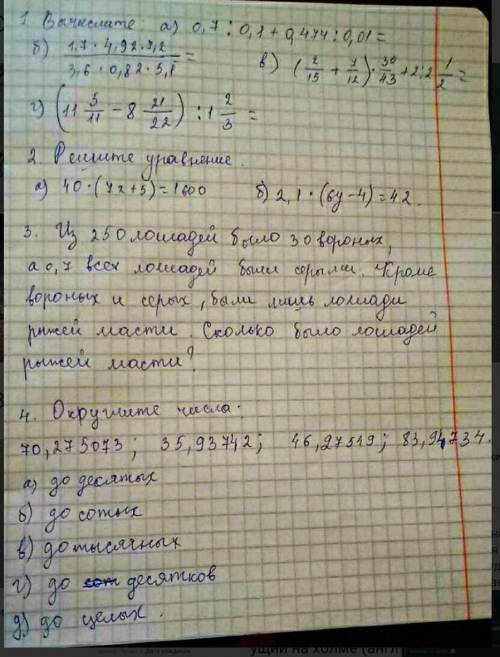 1. Вычислите: а) 0,7 : 0,1 + 0,474 : 0,01 =
б) (1,7 · 4,92 · 7,2) / (3,6 · 0,82 · 5,1) =
в) (2/15 + 7/12) · 30/43 + 2 : 2 1/2 =
г) (11 5/11 − 8 21/22) : 1 2/3 =
2. Решите уравнение.
а) 40 · (7x + 5) = 1600 б) 2,1 · (6y − 4) = 42.
3. Из 250 лошадей было 30 вороных,
а 0,7 всех лошадей были серыми. Кроме
вороных и серых, были лишь лошади
рыжей масти. Сколько было лошадей
рыжей масти?
4. Округлите числа:
70,275073; 35,93742; 46,27519; 83,94734.
а) до десятых
б) до сотых
в) до тысячных
г) до десятков
д) до целых.
ущий на холме (англ